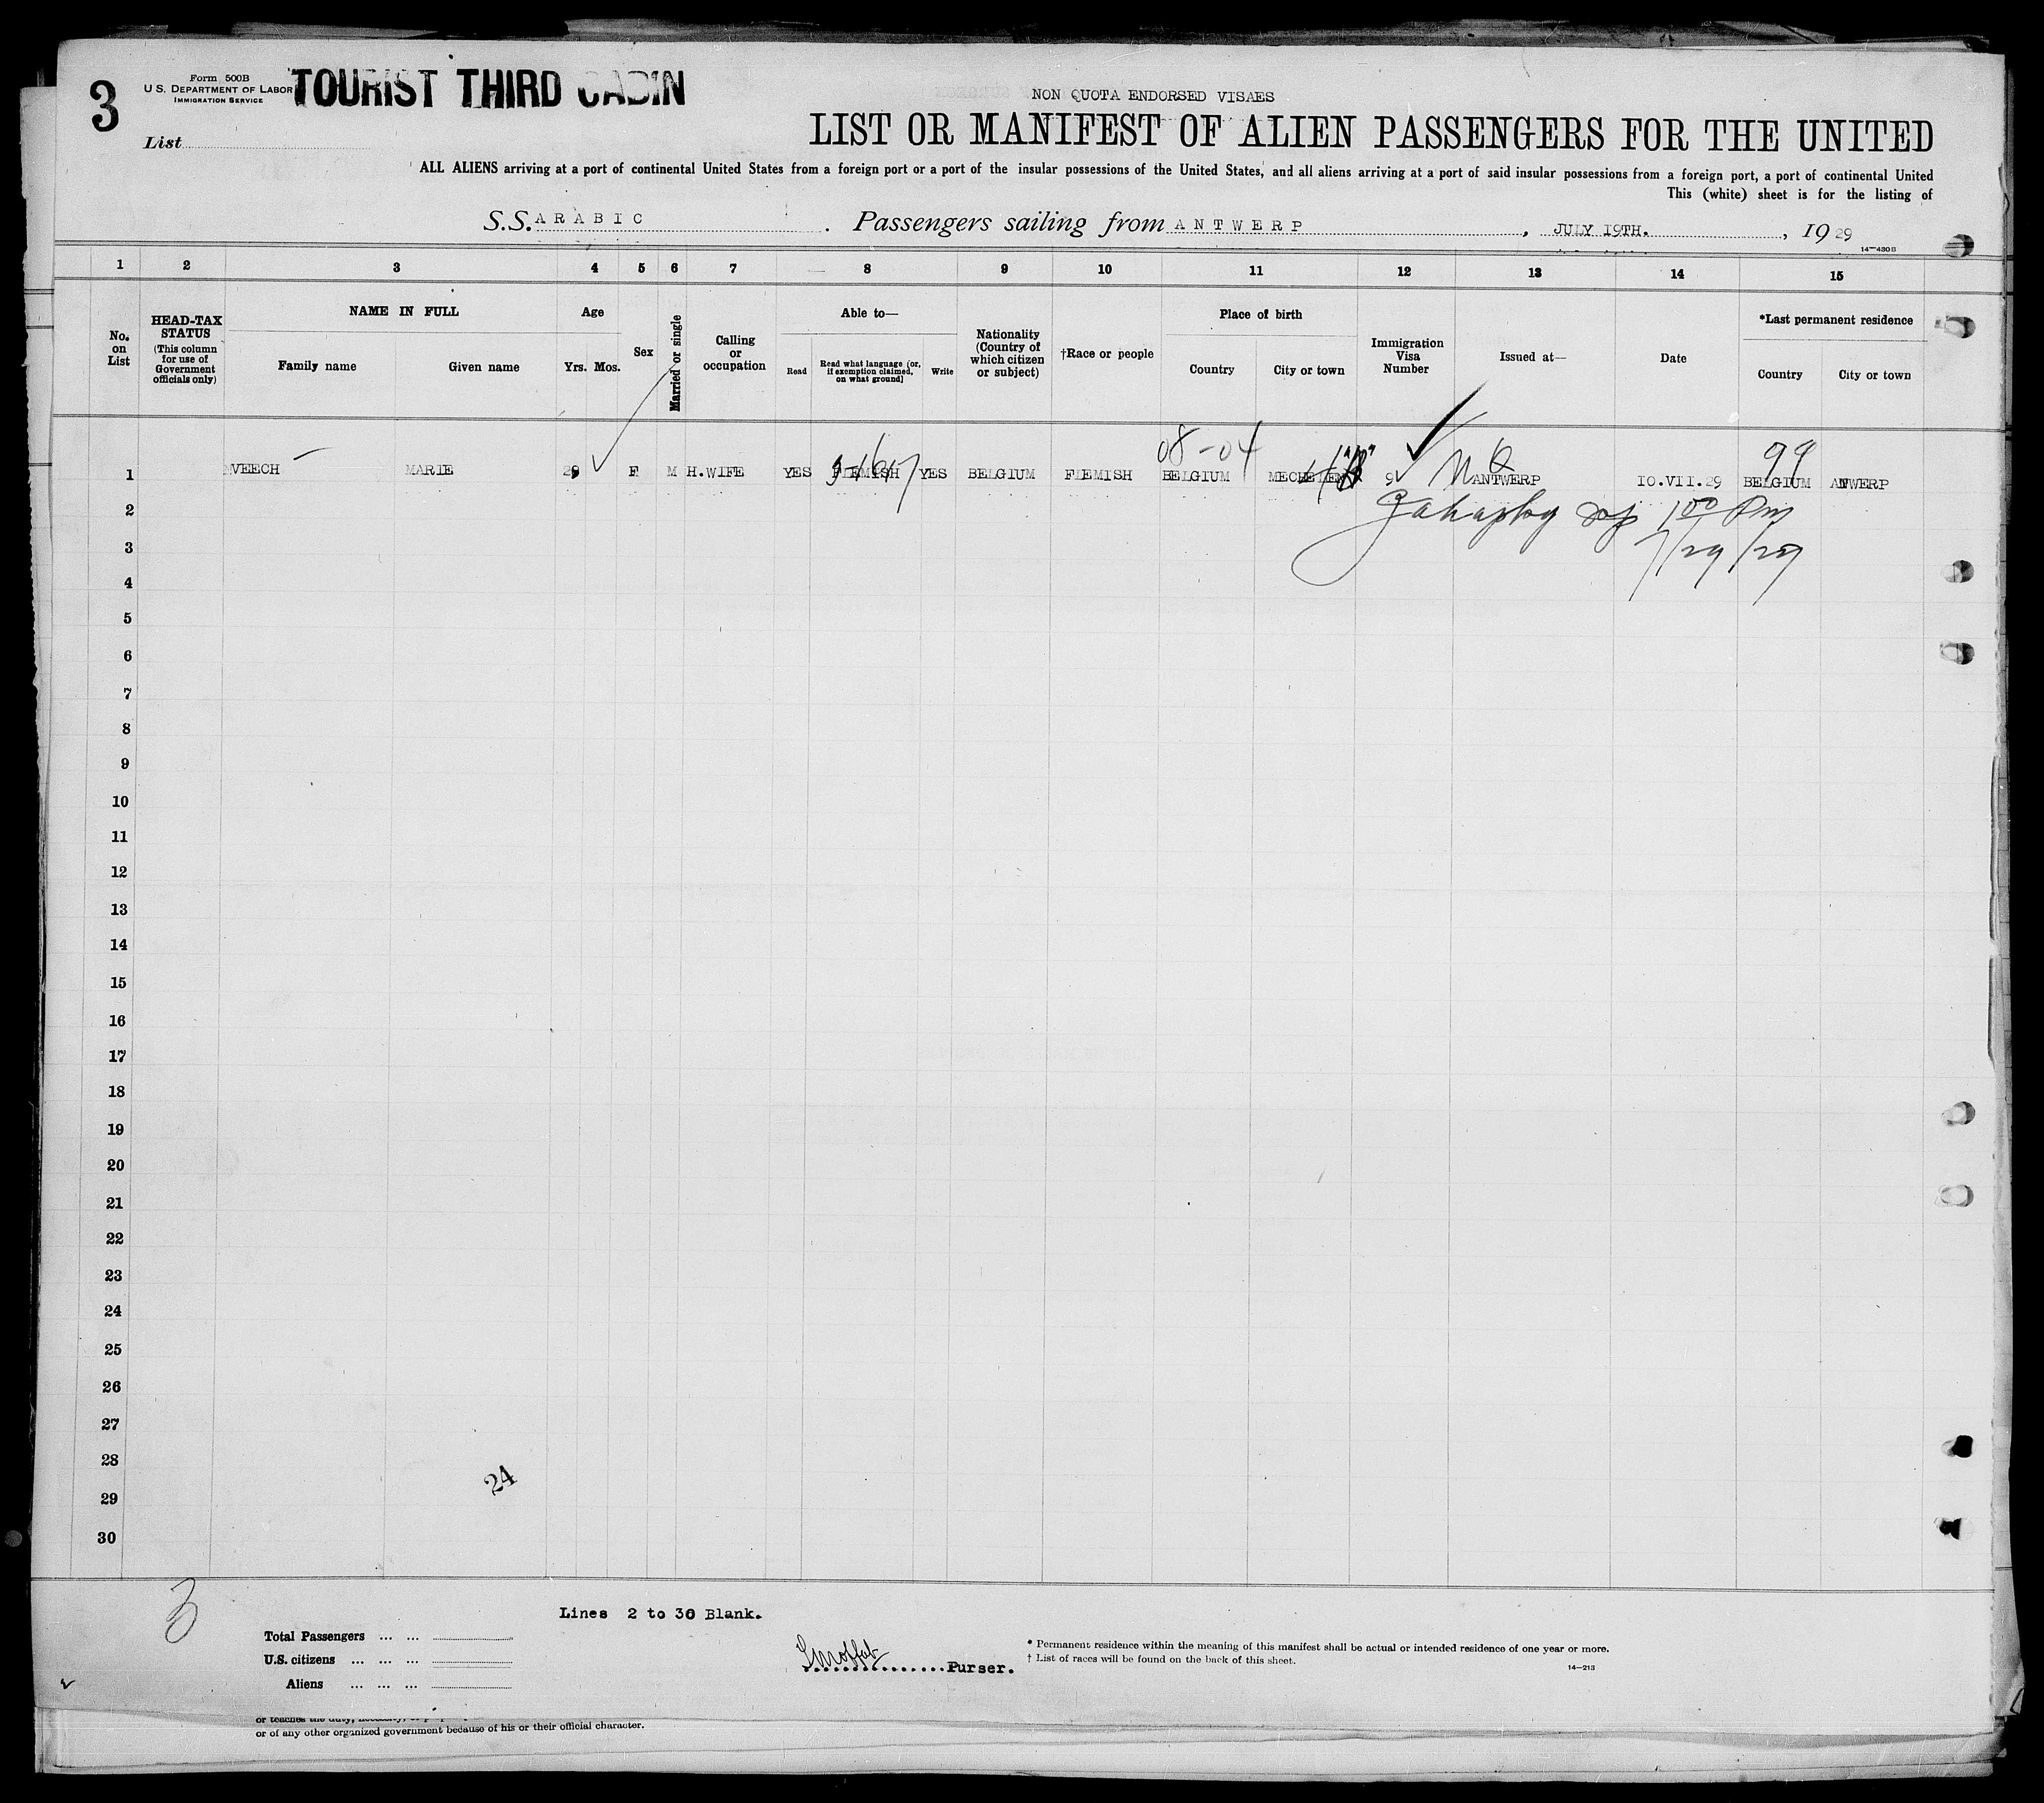 3
Form 500B
U. S. DEPARTMENT OF LABOR
IMMIGRATION SERVICE
TOURIST THIRD CABIN
NON QUOTA ENDORSED VISAES
List
LIST OR MANIFEST OF ALIEN PASSENGERS FOR THE UNITED
ALL ALIENS arriving at a port of continental United States from a foreign port or a port of the insular possessions of the United States, and all aliens arriving at a port of said insular possessions from a foreign port, a port of continental United
This (white) sheet is for the listing of
S.S. ARABIC . Passengers sailing from ANTWERP , JULY 19TH. , 19 29
14—430B
1 2 3 4 5 6 7 8 9 10 11 12 13 14 15
No. on List
HEAD-TAX STATUS (This column for use of Government officials only)
NAME IN FULL
Family name Given name
Age
Yrs. Mos.
Sex
Married or single
Calling or occupation
Able to—
Read Read what language (or, if exemption claimed, on what ground) Write
Nationality (Country of which citizen or subject)
†Race or people
Place of birth
Country City or town
Immigration Visa Number
Issued at—
Date
*Last permanent residence
Country City or town
08-04 99
1 VEECH MARIE 29 F M H.WIFE YES FLEMISH YES BELGIUM FLEMISH BELGIUM 9 NQ ANTWERP 10.VII.29 BELGIUM
2 1 00 Pm
3 7/29/29
4
5
6
7
8
9
10
11
12
13
14
15
16
17
18
19
20
21
22
23
24
25
26
27
28
24
29
30
3
Lines 2 to 30 Blank.
Total Passengers ... ...
U.S. citizens ... ... ...
Aliens ... ... ...
Purser.
* Permanent residence within the meaning of this manifest shall be actual or intended residence of one year or more.
† List of races will be found on the back of this sheet.
14—213
or of any other organized government because of his or their official character.